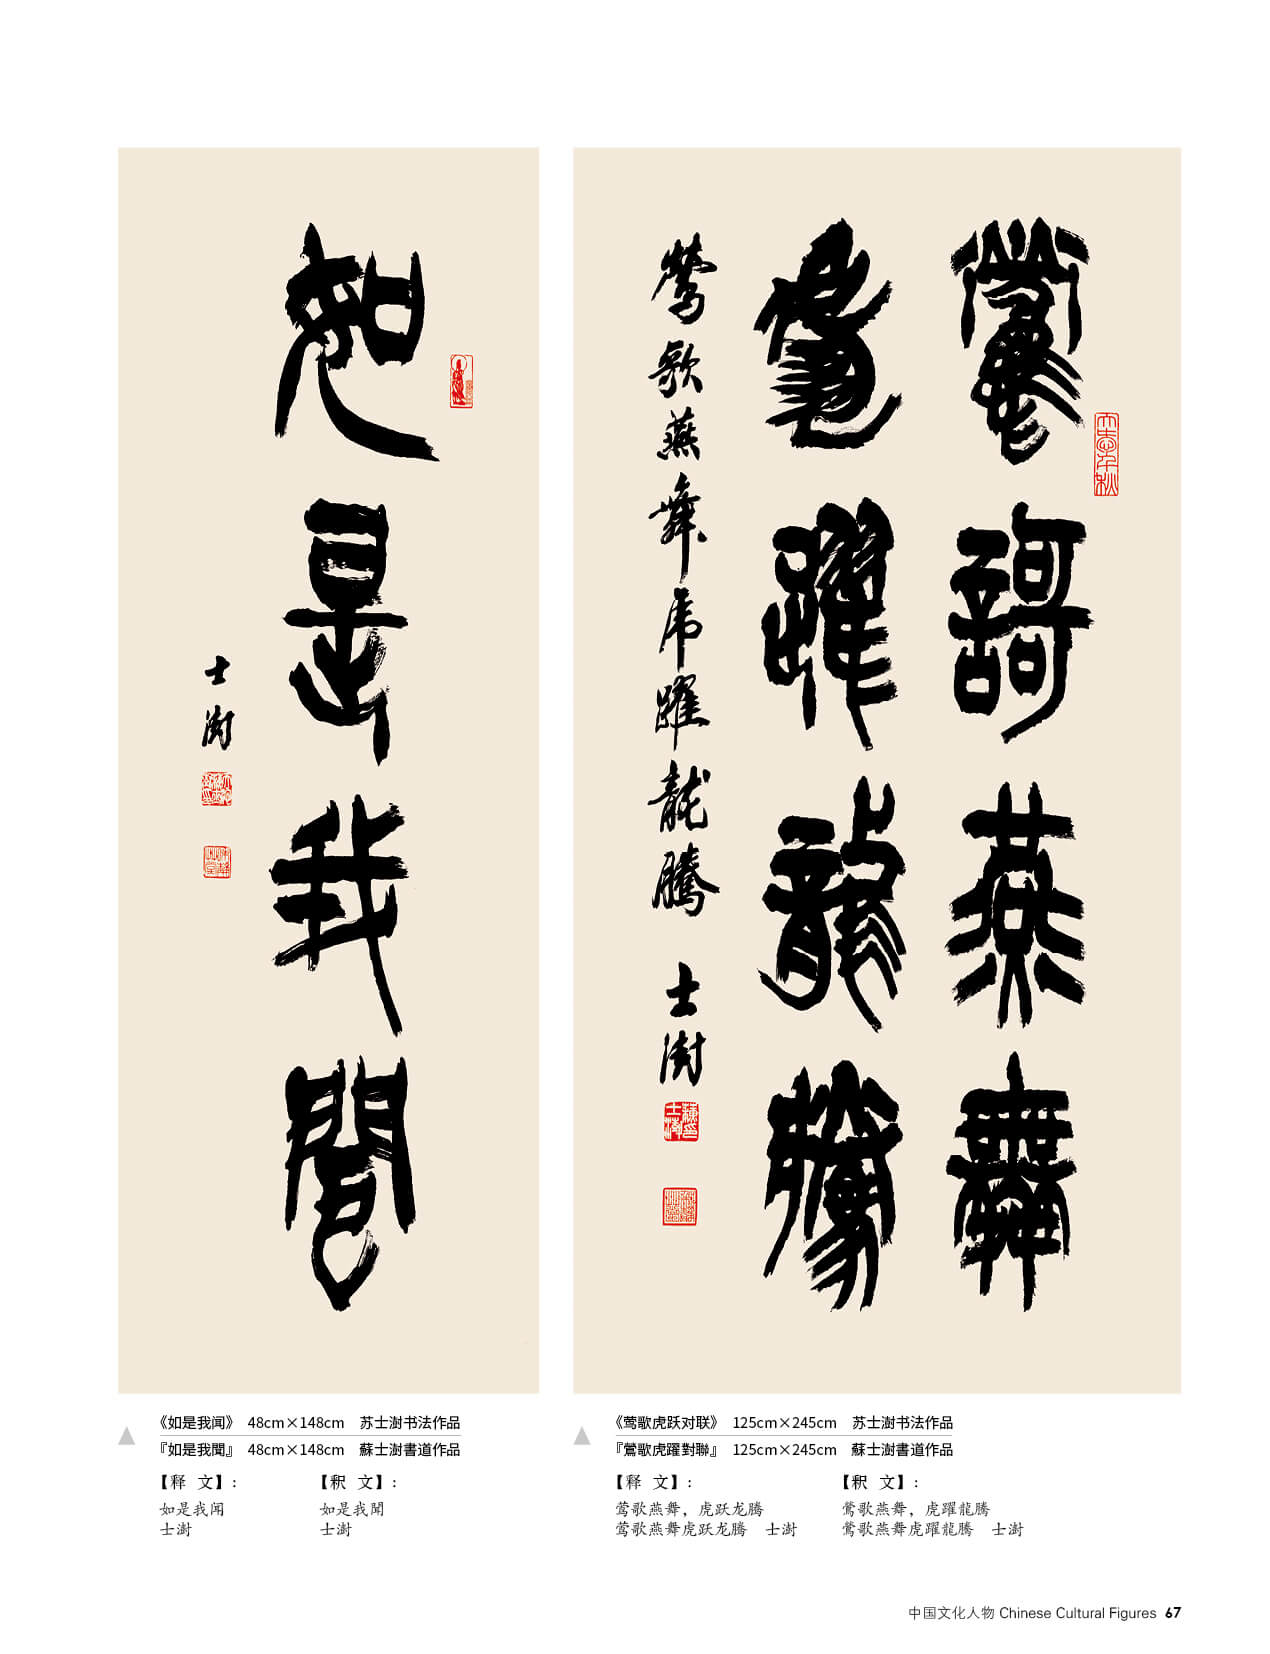 如是我聞
士澍
鶯謌燕舞
虎躍龍騰
鶯歌燕舞虎躍龍騰 士澍
大吉千秋
蘇士澍印
《如是我闻》 48cm×148cm 苏士澍书法作品
『如是我聞』 48cm×148cm 蘇士澍書道作品
【释 文】:
如是我闻
士澍
【釈 文】:
如是我聞
士澍
《莺歌虎跃对联》 125cm×245cm 苏士澍书法作品
『鶯歌虎躍對聯』 125cm×245cm 蘇士澍書道作品
【释 文】:
莺歌燕舞，虎跃龙腾
莺歌燕舞虎跃龙腾 士澍
【釈 文】:
鶯歌燕舞，虎躍龍騰
鶯歌燕舞虎躍龍騰 士澍
中国文化人物 Chinese Cultural Figures 67